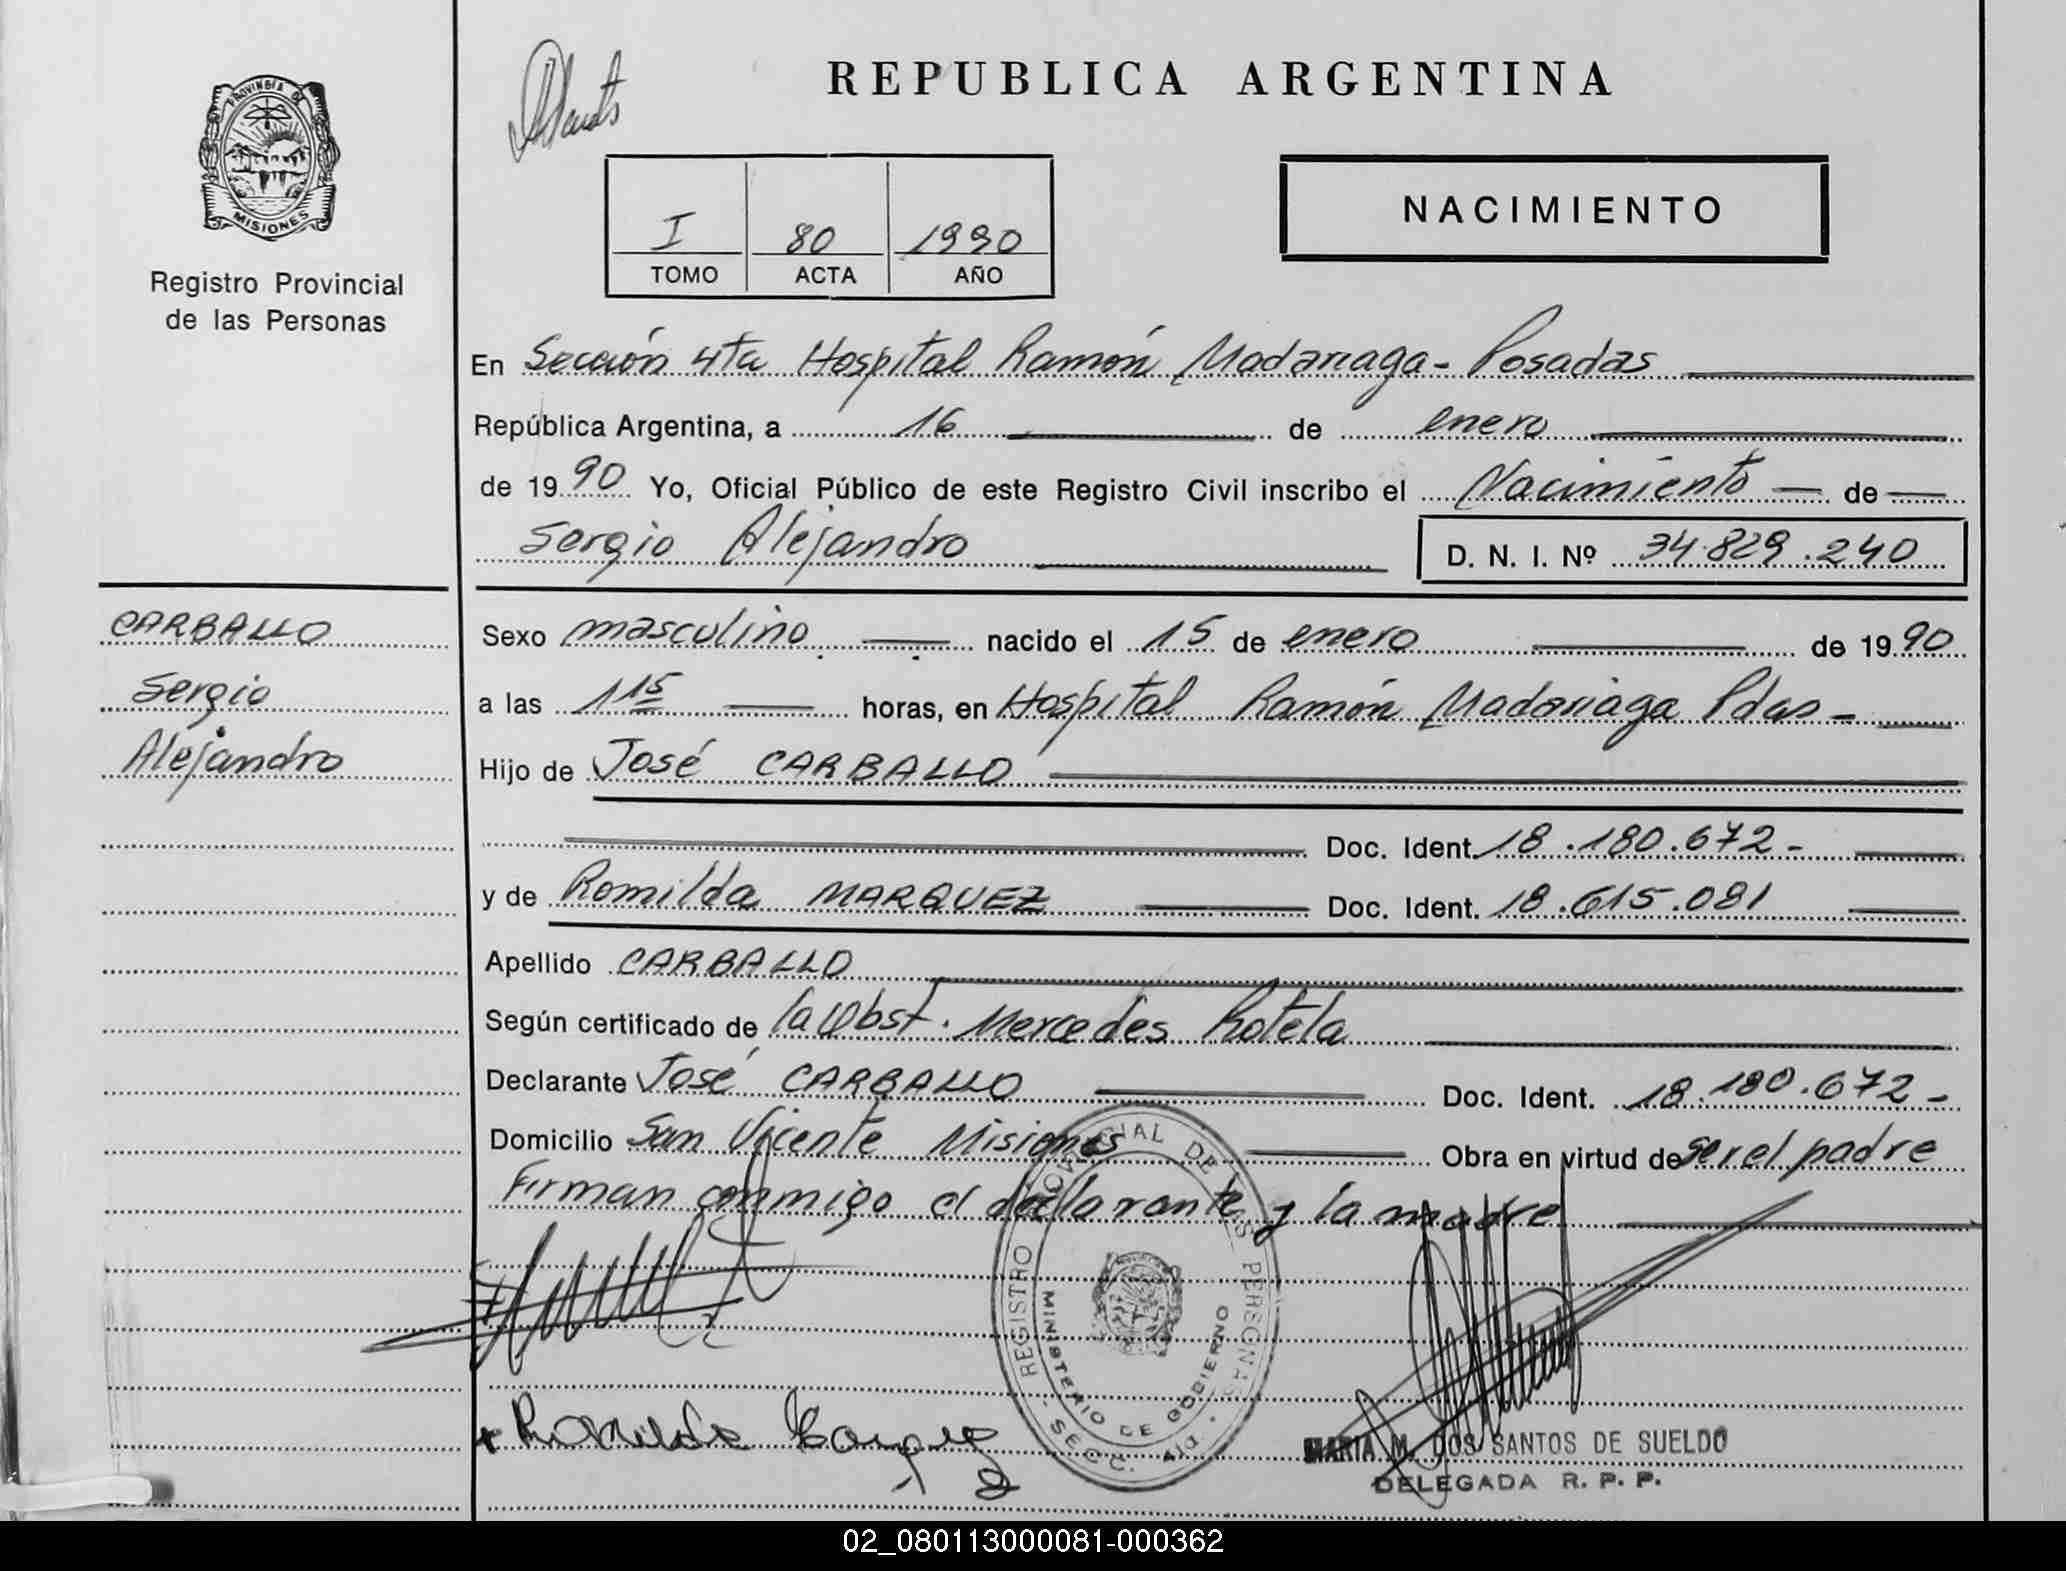 REPUBLICA ARGENTINA
PROVINCIA DE
MISIONES
Registro Provincial
de las Personas
I 80 1990
TOMO ACTA AÑO
NACIMIENTO
En Sección 4ta Hospital Ramón Madariaga - Posadas
República Argentina, a 16 de enero
de 1990 Yo, Oficial Público de este Registro Civil inscribo el Nacimiento de
Sergio Alejandro
D. N. I. Nº 34.829.240
CARBALLO
Sergio
Alejandro
Sexo masculino nacido el 15 de enero de 1990
a las 1 15 horas, en Hospital Ramón Madariaga Pdas -
Hijo de José CARBALLO
Doc. Ident. 18.180.672 -
y de Romilda MARQUEZ Doc. Ident. 18.615.081
Apellido CARBALLO
Según certificado de la Obst. Mercedes Rotela
Declarante José CARBALLO Doc. Ident. 18.180.672 -
Domicilio San Vicente Misiones Obra en virtud de ser el padre
Firman conmigo el declarante y la madre
REGISTRO PROVINCIAL DE LAS PERSONAS
MINISTERIO DE GOBIERNO
SECC. 4ta
MARIA M. DOS SANTOS DE SUELDO
DELEGADA R. P. P.
02_080113000081-000362